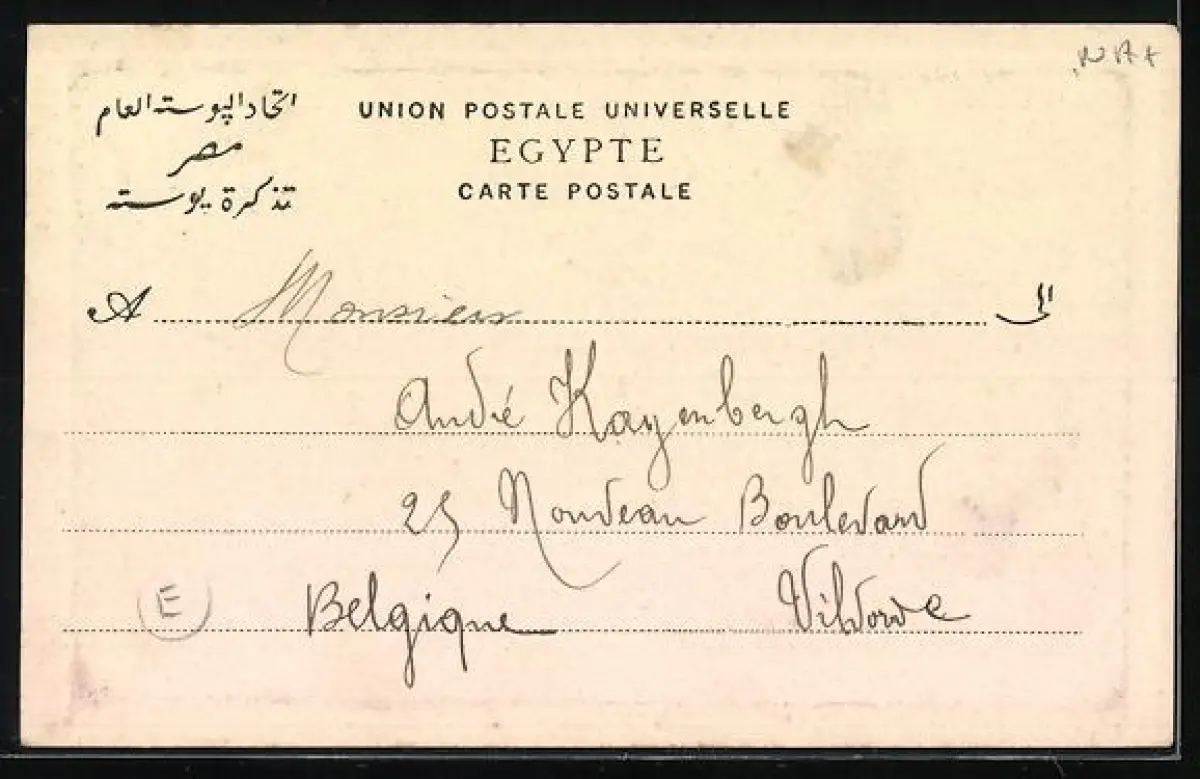 اتحاد البوسته العام
مصر
تذكرة بوسته
UNION POSTALE UNIVERSELLE
EGYPTE
CARTE POSTALE
A Monsieur الى
André Kayenbergh
25 Nouveau Boulevard
Belgique Vilvorde
E